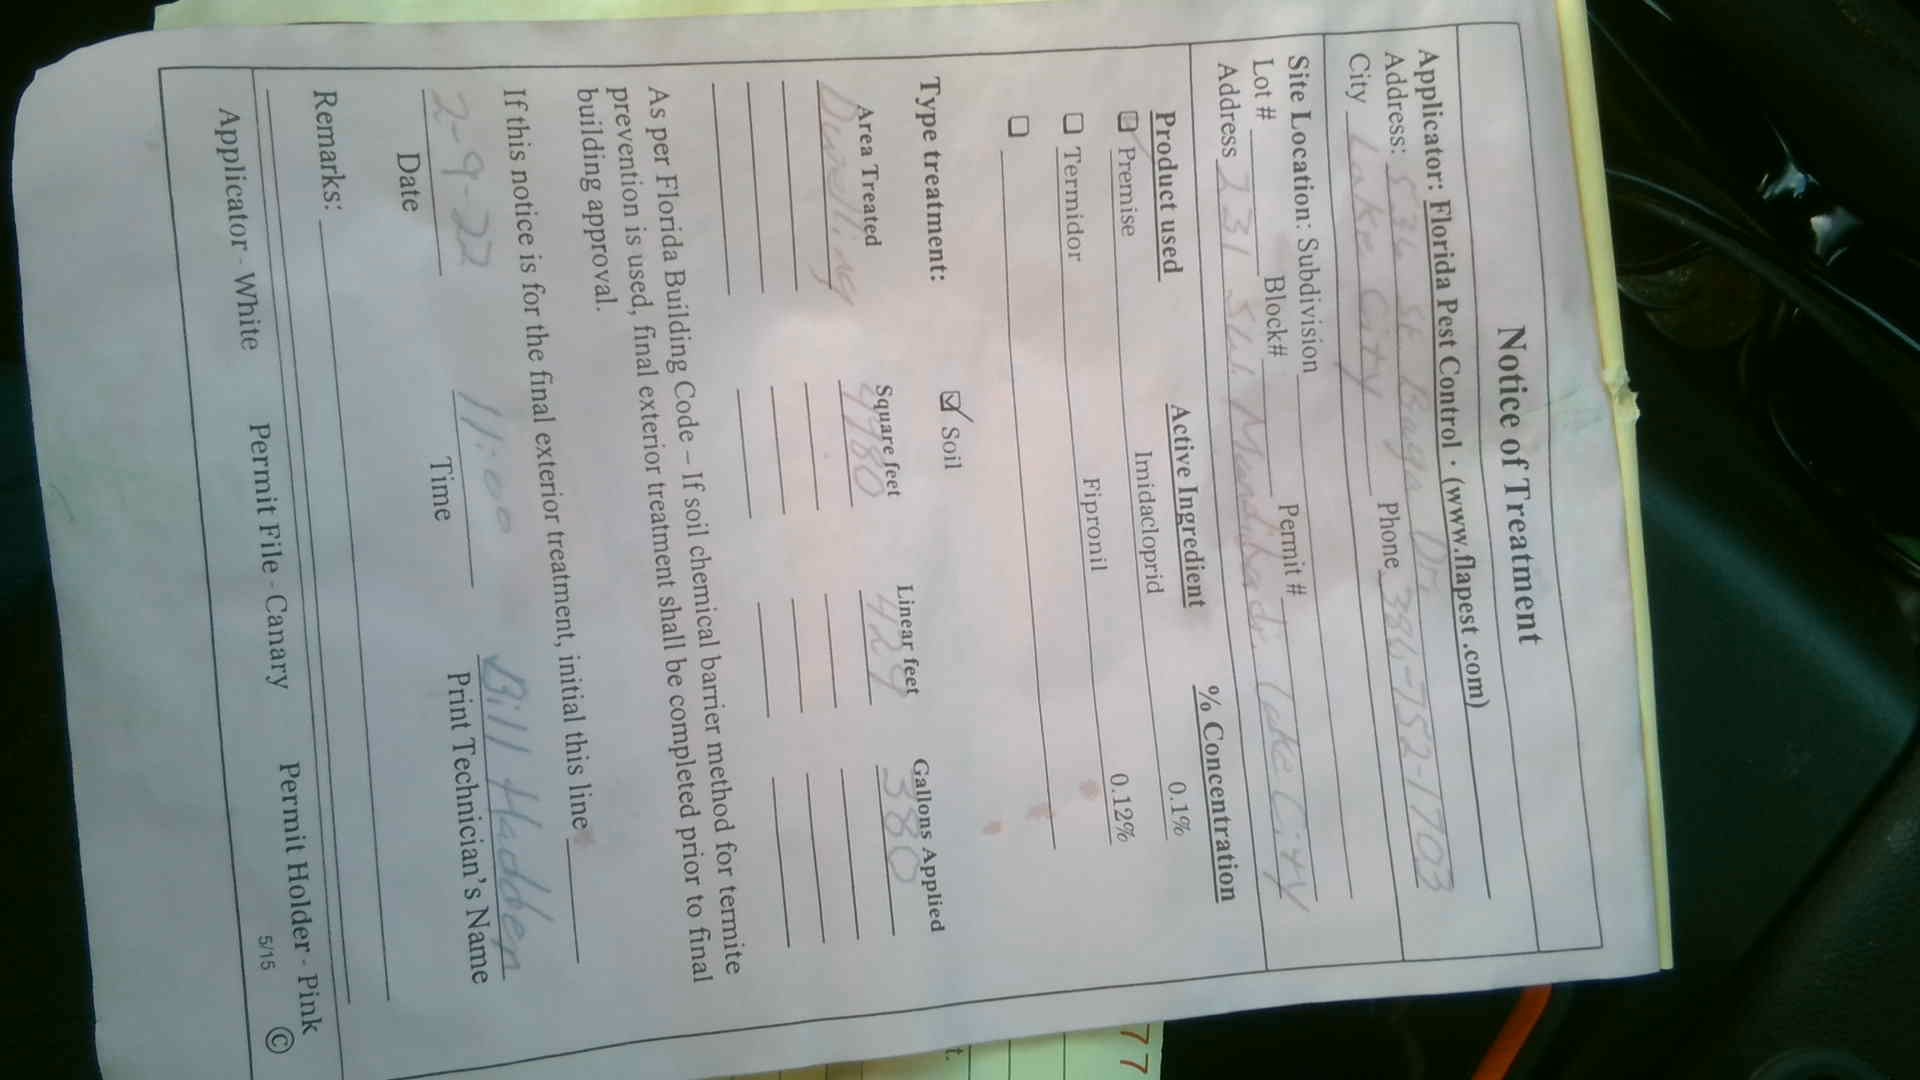 Notice of Treatment
Applicator: Florida Pest Control · (www.flapest.com)
Address: 536 SE Baya Dr.
City Lake City Phone 386-752-1703
Site Location: Subdivision
Lot # Block# Permit #
Address 231 Lake City
Product used Active Ingredient % Concentration
Premise Imidacloprid 0.1%
Termidor Fipronil 0.12%
Type treatment: Soil
Area Treated Square feet Linear feet Gallons Applied
Dwelling 4480 429 380
As per Florida Building Code – If soil chemical barrier method for termite
prevention is used, final exterior treatment shall be completed prior to final
building approval.
If this notice is for the final exterior treatment, initial this line
2-9-22 11:00 Bill Hadden
Date Time Print Technician's Name
Remarks:
Applicator - White Permit File - Canary Permit Holder - Pink
5/15 ©
77
t.